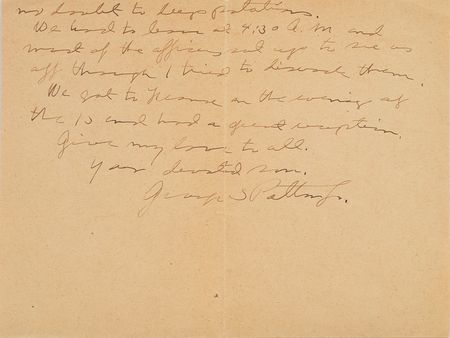 no doubt to deep potations.
We had to leave at 4:30 A.M and
most of the officers sat up to see us
off though I tried to disuade them.
We got to France on the evening of
the 13 and had a great reception.
Give my love to all.
Your devoted son.
George S Patton Jr.